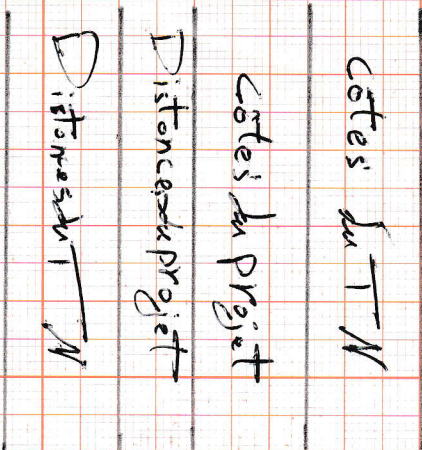 côtes du TN
côtes du projet
Distances du projet
Distances du TN